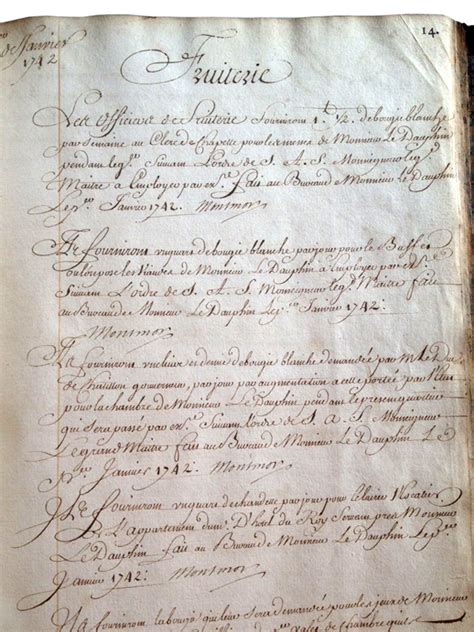 14.
de Janvier
1742
Fruiterie
Les Officiers de Fruiterie fourniront 1 lt 1/2 de bougie blanche
par semaine au Clerc de Chapelle pour les messes de Monsieur Le Dauphin
pendant le Suivant L'ordre de S. A. S. Monseigneur le g
Maitre a Employer par Fait au Bureau de Monsieur Le Dauphin
Le Janvier 1742. Montmor
Ils fourniront un quart de bougie blanche par jour pour le Buffet
ou lon pose les viandes de Monsieur Le Dauphin a Employer par
Suivant L'ordre de S. A. S. Monseigneur le g Maitre fait
au Bureau de Monsieur Le Dauphin Le Janvier 1742.
Montmor
Ils fourniront une livre et demie de bougie blanche demandée par M. Le Duc
de Chatillon gouverneur, par jour par augmentation a celle portée par
pour la chambre de Monsieur Le Dauphin, pendant le present quartier
qui sera passé par Suivant l'ordre de S. A. S. Monseigneur
Le grand Maitre fait au Bureau de Monsieur Le Dauphin Le
Janvier 1742. Montmor
Ils fourniront un quart de chandelle par jour pour
L'appartement d'un d'hotel du Roy Servant pres Monsieur
Le Dauphin fait au Bureau de Monsieur Le Dauphin Le
Janvier 1742. Montmor
Ils fourniront la bougie qui leur sera demandée pour les jeux de Monsieur
valets de chambre